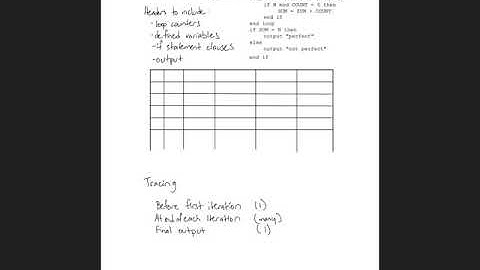 if N mod COUNT = 0 then
SUM = SUM + COUNT
end if
end loop
if SUM = N then
output "perfect"
else
output "not perfect"
end if
Headers to include
-loop counters
-defined variables
-if statement clauses
-output
Tracing
Before first iteration (1)
At end of each iteration (many)
Final output (1)